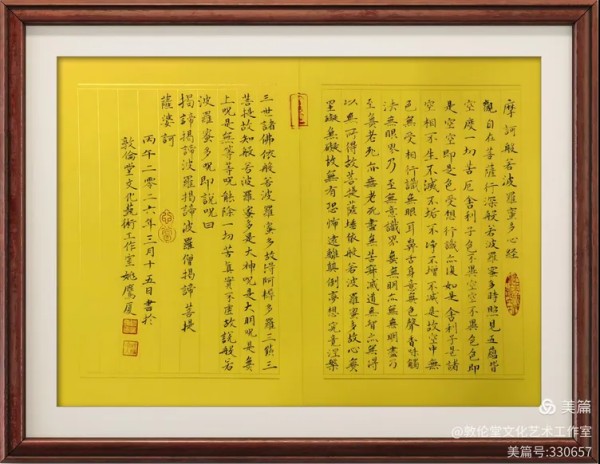 摩訶般若波羅蜜多心経
觀自在菩薩行深般若波羅蜜多時照見五蘊皆
空度一切苦厄舍利子色不異空空不異色色即
是空空即是色受想行識亦復如是舍利子是諸
空相不生不滅不垢不淨不增不減是故空中無
色無受想行識無眼耳鼻舌身意無色聲香味觸
法無眼界乃至無意識界無無明亦無無明盡乃
至無老死亦無老死盡無苦集滅道無智亦無得
以無所得故菩提薩埵依般若波羅蜜多故心無
罣礙無罣礙故無有恐怖遠離顛倒夢想究竟涅槃
三世諸佛依般若波羅蜜多故得阿耨多羅三藐三
菩提故知般若波羅蜜多是大神呪是大明呪是無
上呪是無等等呪能除一切苦真實不虛故説般若
波羅蜜多呪即説呪曰
揭諦揭諦波羅揭諦波羅僧揭諦菩提
薩婆訶
丙午二零二六年三月十五日書於
敦倫堂文化藝術工作室姚鷹厦
美篇
@敦伦堂文化艺术工作室
美篇号:330657